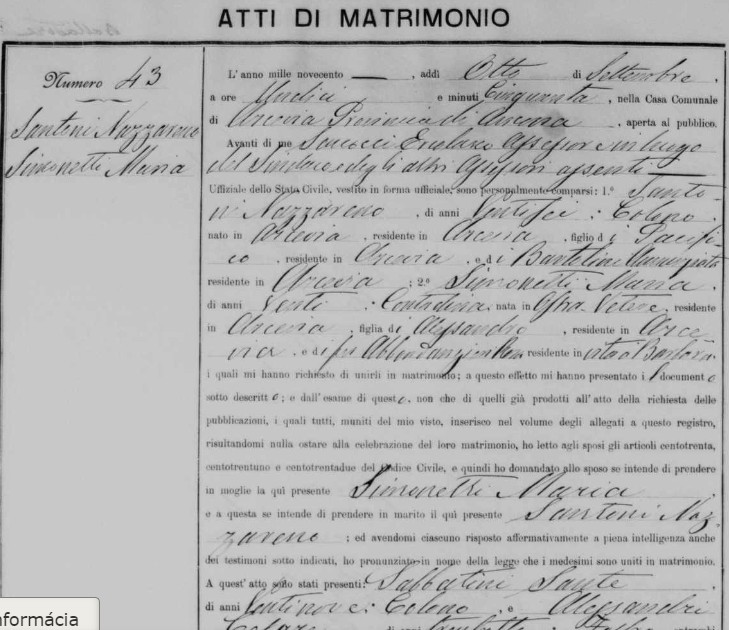 ATTI DI MATRIMONIO
Numero 43
Santoni Nazzareno
Simonetti Maria
L'anno mille novecento —, addì Otto di Settembre,
a ore Undici e minuti Cinquanta, nella Casa Comunale
di Arcevia Provincia di Ancona, aperta al pubblico.
Avanti di me Assessore in luogo
del Sindaco e degli altri Assessori assenti —
Uffiziale dello Stato Civile, vestito in forma ufficiale, sono personalmente comparsi: 1.° Santo-
ni Nazzareno, di anni Ventisei: Colono,
nato in Arcevia, residente in Arcevia, figlio di Pacifi-
co, residente in Arcevia, e di
residente in Arcevia; 2.° Simonetti Maria,
di anni Venti: Contadina, nata in residente
in Arcevia, figlia di Alessandro, residente in Arce
via, e di fu residente in vita a
i quali mi hanno richiesto di unirli in matrimonio; a questo effetto mi hanno presentato i documento
sotto descritto; e dall'esame di questo, non che di quelli già prodotti all'atto della richiesta delle
pubblicazioni, i quali tutti, muniti del mio visto, inserisco nel volume degli allegati a questo registro,
risultandomi nulla ostare alla celebrazione del loro matrimonio, ho letto agli sposi gli articoli centotrenta,
centotrentuno e centotrentadue del Codice Civile, e quindi ho domandato allo sposo se intende di prendere
in moglie la quì presente Simonetti Maria,
e a questa se intende di prendere in marito il quì presente Santoni Naz-
zareno; ed avendomi ciascuno risposto affermativamente a piena intelligenza anche
dei testimoni sotto indicati, ho pronunziato in nome della legge che i medesimi sono uniti in matrimonio.
A quest'atto sono stati presenti: Sabbatini Sante,
di anni Ventinove: Colono, e Alessandri
Cesare
nformácia